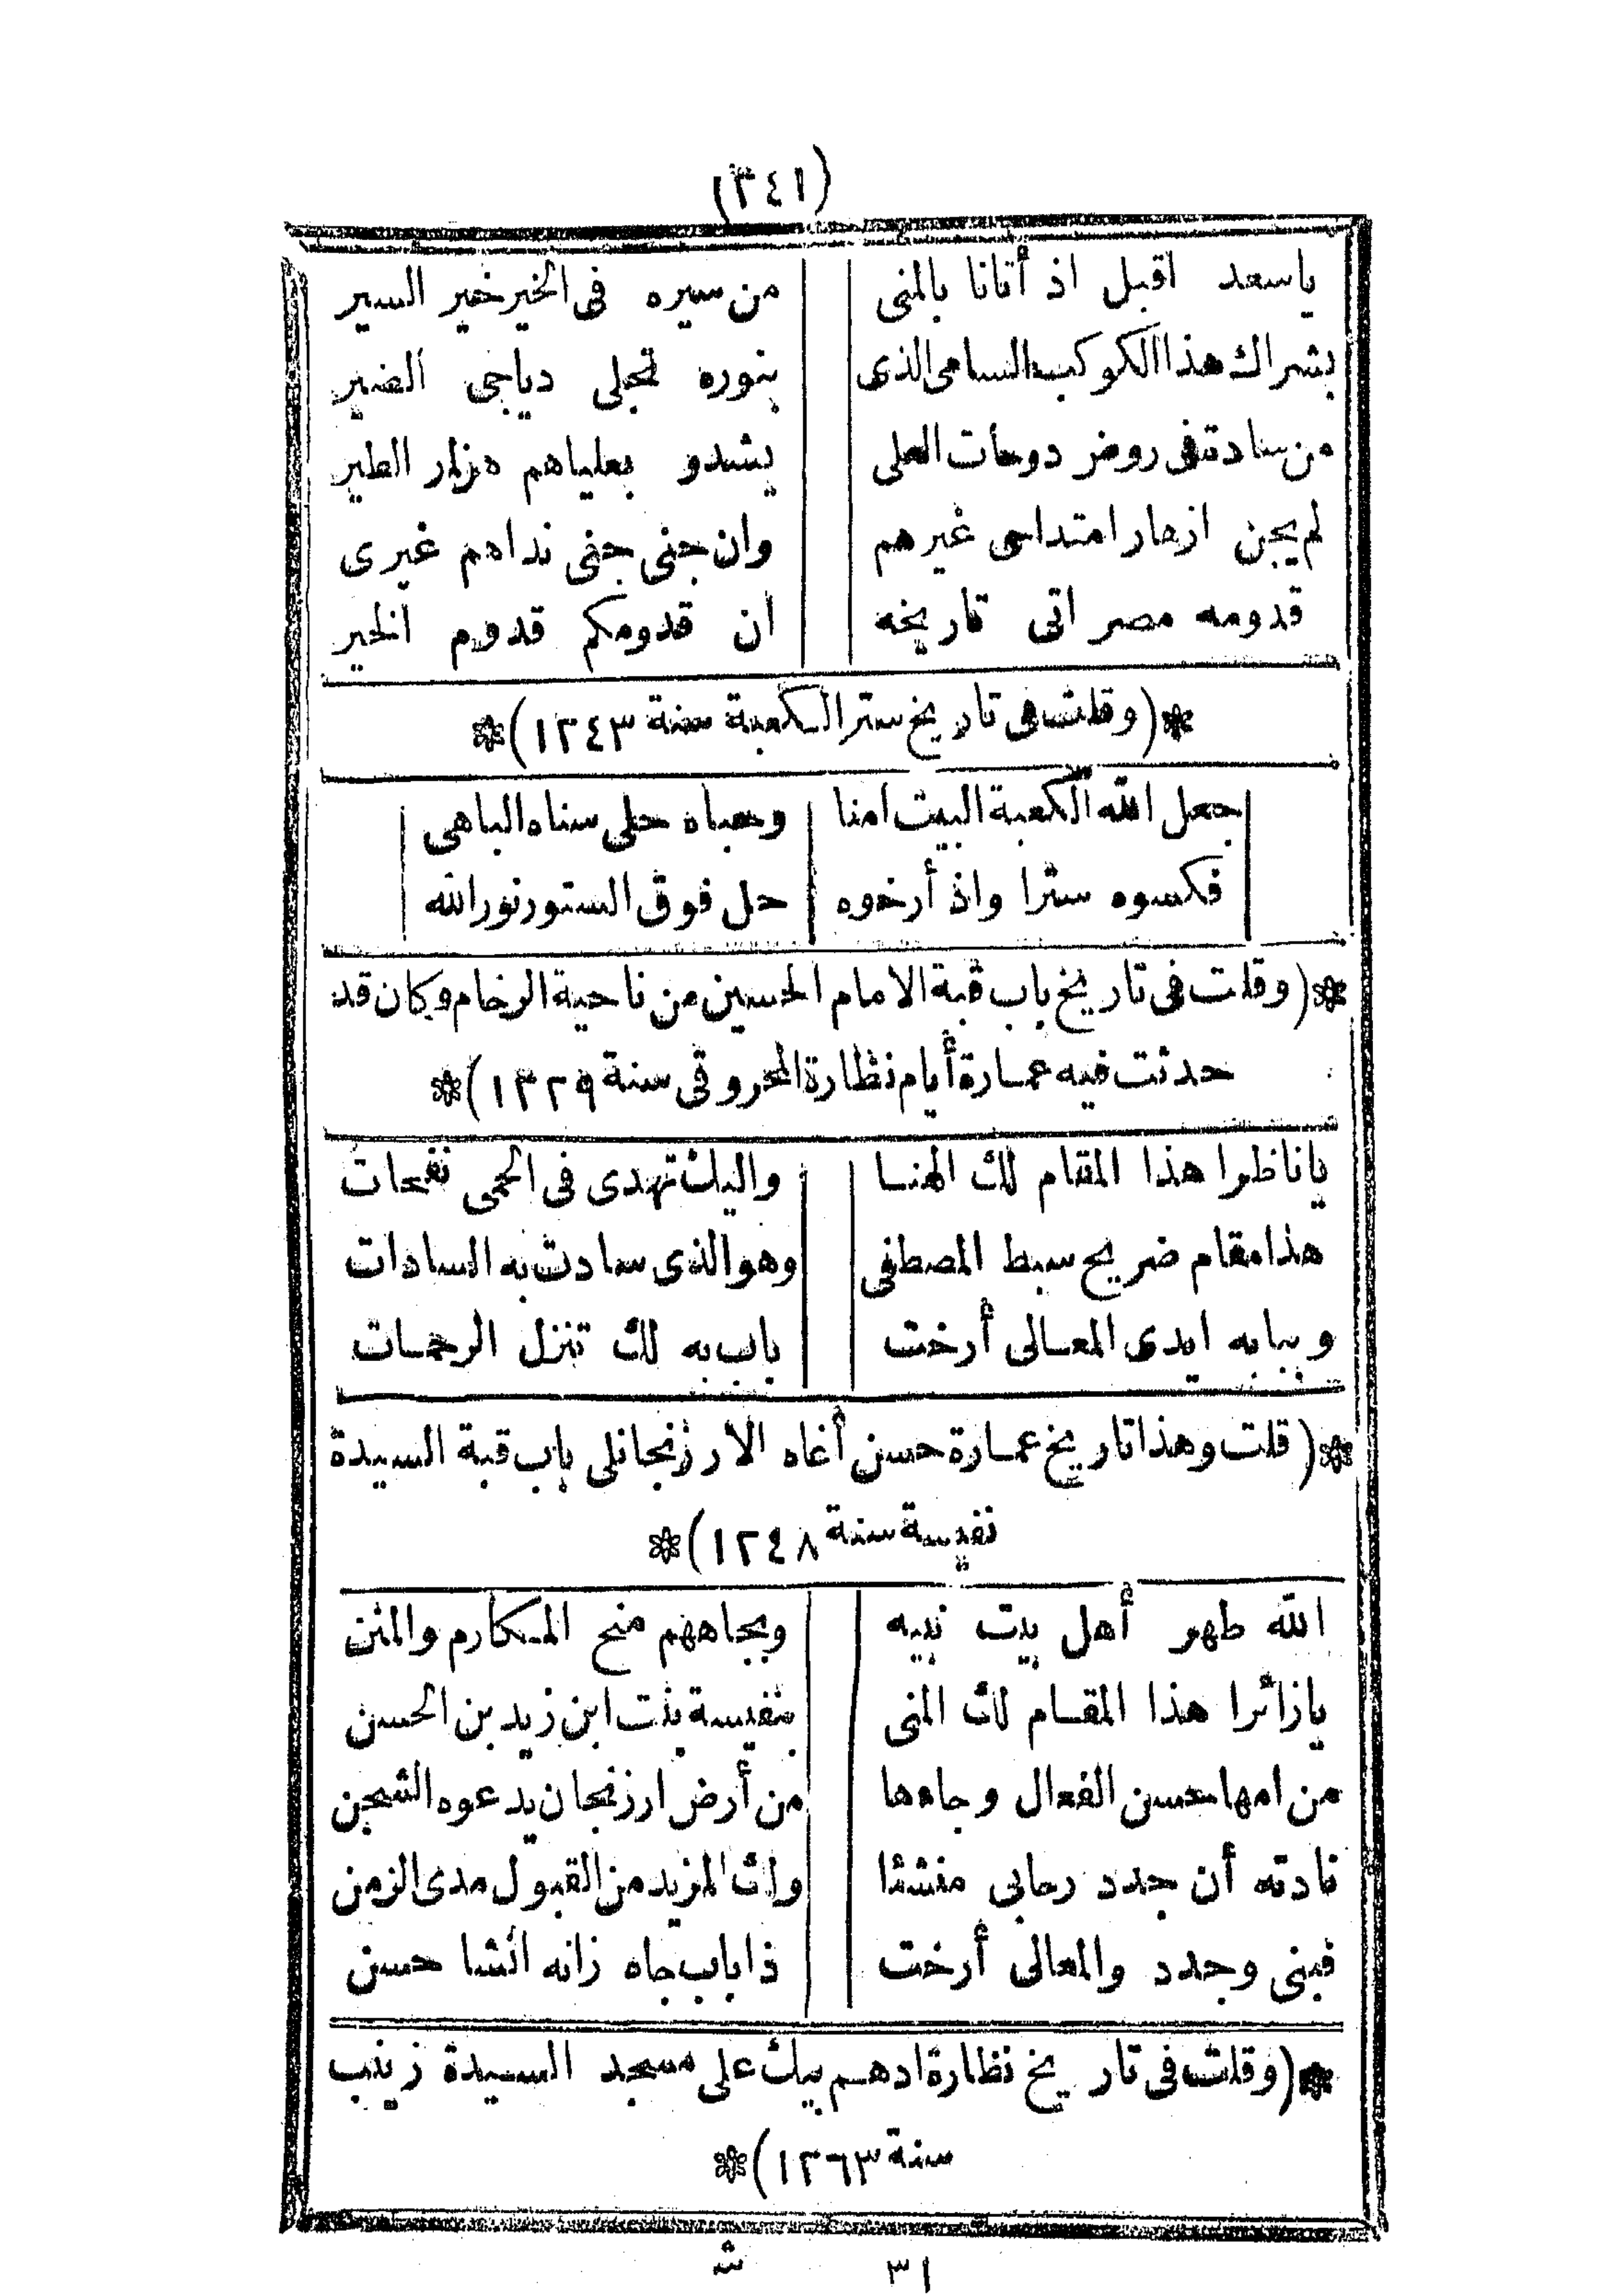 (٣٤١)
ياسعد اقبل اذ أتانا بالمنى من سيره فى الخير خير السير
بشراك هذا الكوكب السامى الذى بنوره تجلى دياجى الضير
من سادة فى روض دوحات العلى يشدو بعلياهم هزار الطير
لم يجن ازهار امتداحى غيرهم وان جنى جنى نداهم غيرى
قدومه مصر اتى تاريخه ان قدومكم قدوم الخير
*(وقلت فى تاريخ ستر الكعبة سنة ١٢٤٣)*
جعل الله الكعبة البيت امنا وحباه حلى سناه الباهى
فكسوه سترا واذ أرخوه حل فوق الستور نور الله
*(وقلت فى تاريخ باب قبة الامام الحسين من ناحية الرخام وكان قد
حدثت فيه عمارة أيام نظارة المحروقى سنة ١٢٢٩)*
ياناظرا هذا المقام لك الهنا واليك تهدى فى الحمى نفحات
هذا مقام ضريح سبط المصطفى وهو الذى سادت به السادات
وببابه ايدى المعالى أرخت باب به لك تنزل الرحمات
*(قلت وهذا تاريخ عمارة حسن أغاه الارزنجانلى باب قبة السيدة
نفيسة سنة ١٢٤٨)*
الله طهر أهل بيت نبيه وبجاههم منح المكارم والمنن
يازائرا هذا المقام لك المنى بنفيسة بنت ابن زيد بن الحسن
من امها حسن الفعال وجاءها من أرض ارزنجان يدعوه الشجن
نادته أن جدد رحابى منشئا ولك المزيد من القبول مدى الزمن
فبنى وجدد والمعالى أرخت ذا باب جاه زانه انشا حسن
*(وقلت فى تاريخ نظارة ادهم بيك على مسجد السيدة زينب
سنة ١٢٦٣)*
٣١ ش